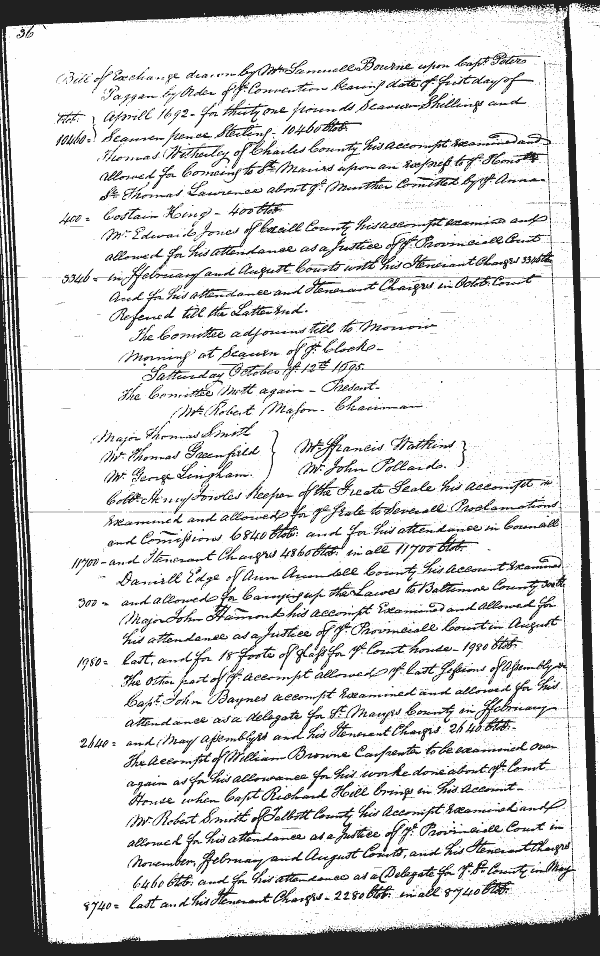 36
Bill of Exchange drawn by Mr. Samuell Bourne upon Capt Peter
Paggan by Order of ye Convention bearing date ye first day of
lbtt. Aprill 1692 - for thirty one pounds Seaven Shillings and
10460= Seaven pence Sterling - 10460 lbtt.
Thomas Wetherley of Charles County his accompt Examined and
allowed for Comeing to St. Maries upon an express to ye Honoble
Sr. Thomas Lawrence about ye Murther Comitted by ye Anna-
400= Costain King - 400 lbtt
Mr. Edward Jones of Cecill County his accompt examined and
allowed for his attendance as a Justice of ye Provinciall Court
3346= in ffebruary and August Courts with his Itenerant Charges 3346 lbtt
And for his attendance and Itenerant Charges in Octobr. Court
Referred till the Latter End.
The Comittee adjourns till to Morrow
Morning at Seaven of ye Clock -
Satturday October ye 12th 1695.
The Comittee Mett again - Present
Mr. Robert Mason - Chairman
Major Thomas Smith
Mr. Thomas Greenfield } Mr. ffrancis Watkins }
Mr. George Lingham. Mr. John Pollard.
Collo. Henry Jowles Keeper of the Greate Seale his accompt is
Examined and allowed for ye Seale to Severall Proclamations
and Comissions 6840 lbtt. and for his attendance in Councill
11700- and Itenerant Charges 4860 lbtt. in all 11700 lbtt.
Daniell Edge of Ann Arundell County his Account Examined
300= and allowed for Carrying up the Lawes to Baltimore County 300 lt
Major John Hamond his accompt Examined and allowed for
his attendance as a Justice of ye Provinciall Court in August
1980= last, and for 18 foote of glass for ye Court house - 1980 lbtt.
The other part of ye accompt allowed ye last Sessions of Assembly
Capt. John Baynes accompt Examined and allowed for his
attendance as a delegate for St. Maryes County in ffebruary
2640= and May Assemblyes and his Itenerant Charges 2640 lbtt.
The Accompt of William Browne Carpenter to be examined over
again as for his allowance for his worke done about ye Court
House when Capt Richard Hill brings in his Account -
Mr. Robert Smith of Talbott County his Accompt Examined and
allowed for his attendance as a Justice of ye Provinciall Court in
November, ffebruary and August Courts, and his Itenerant Charges
6460 lbtt. and for his attendance as a Delegate for ye Sd. County in May
8740= last and his Itenerant Charges - 2280 lbtt. in all 8740 lbtt.